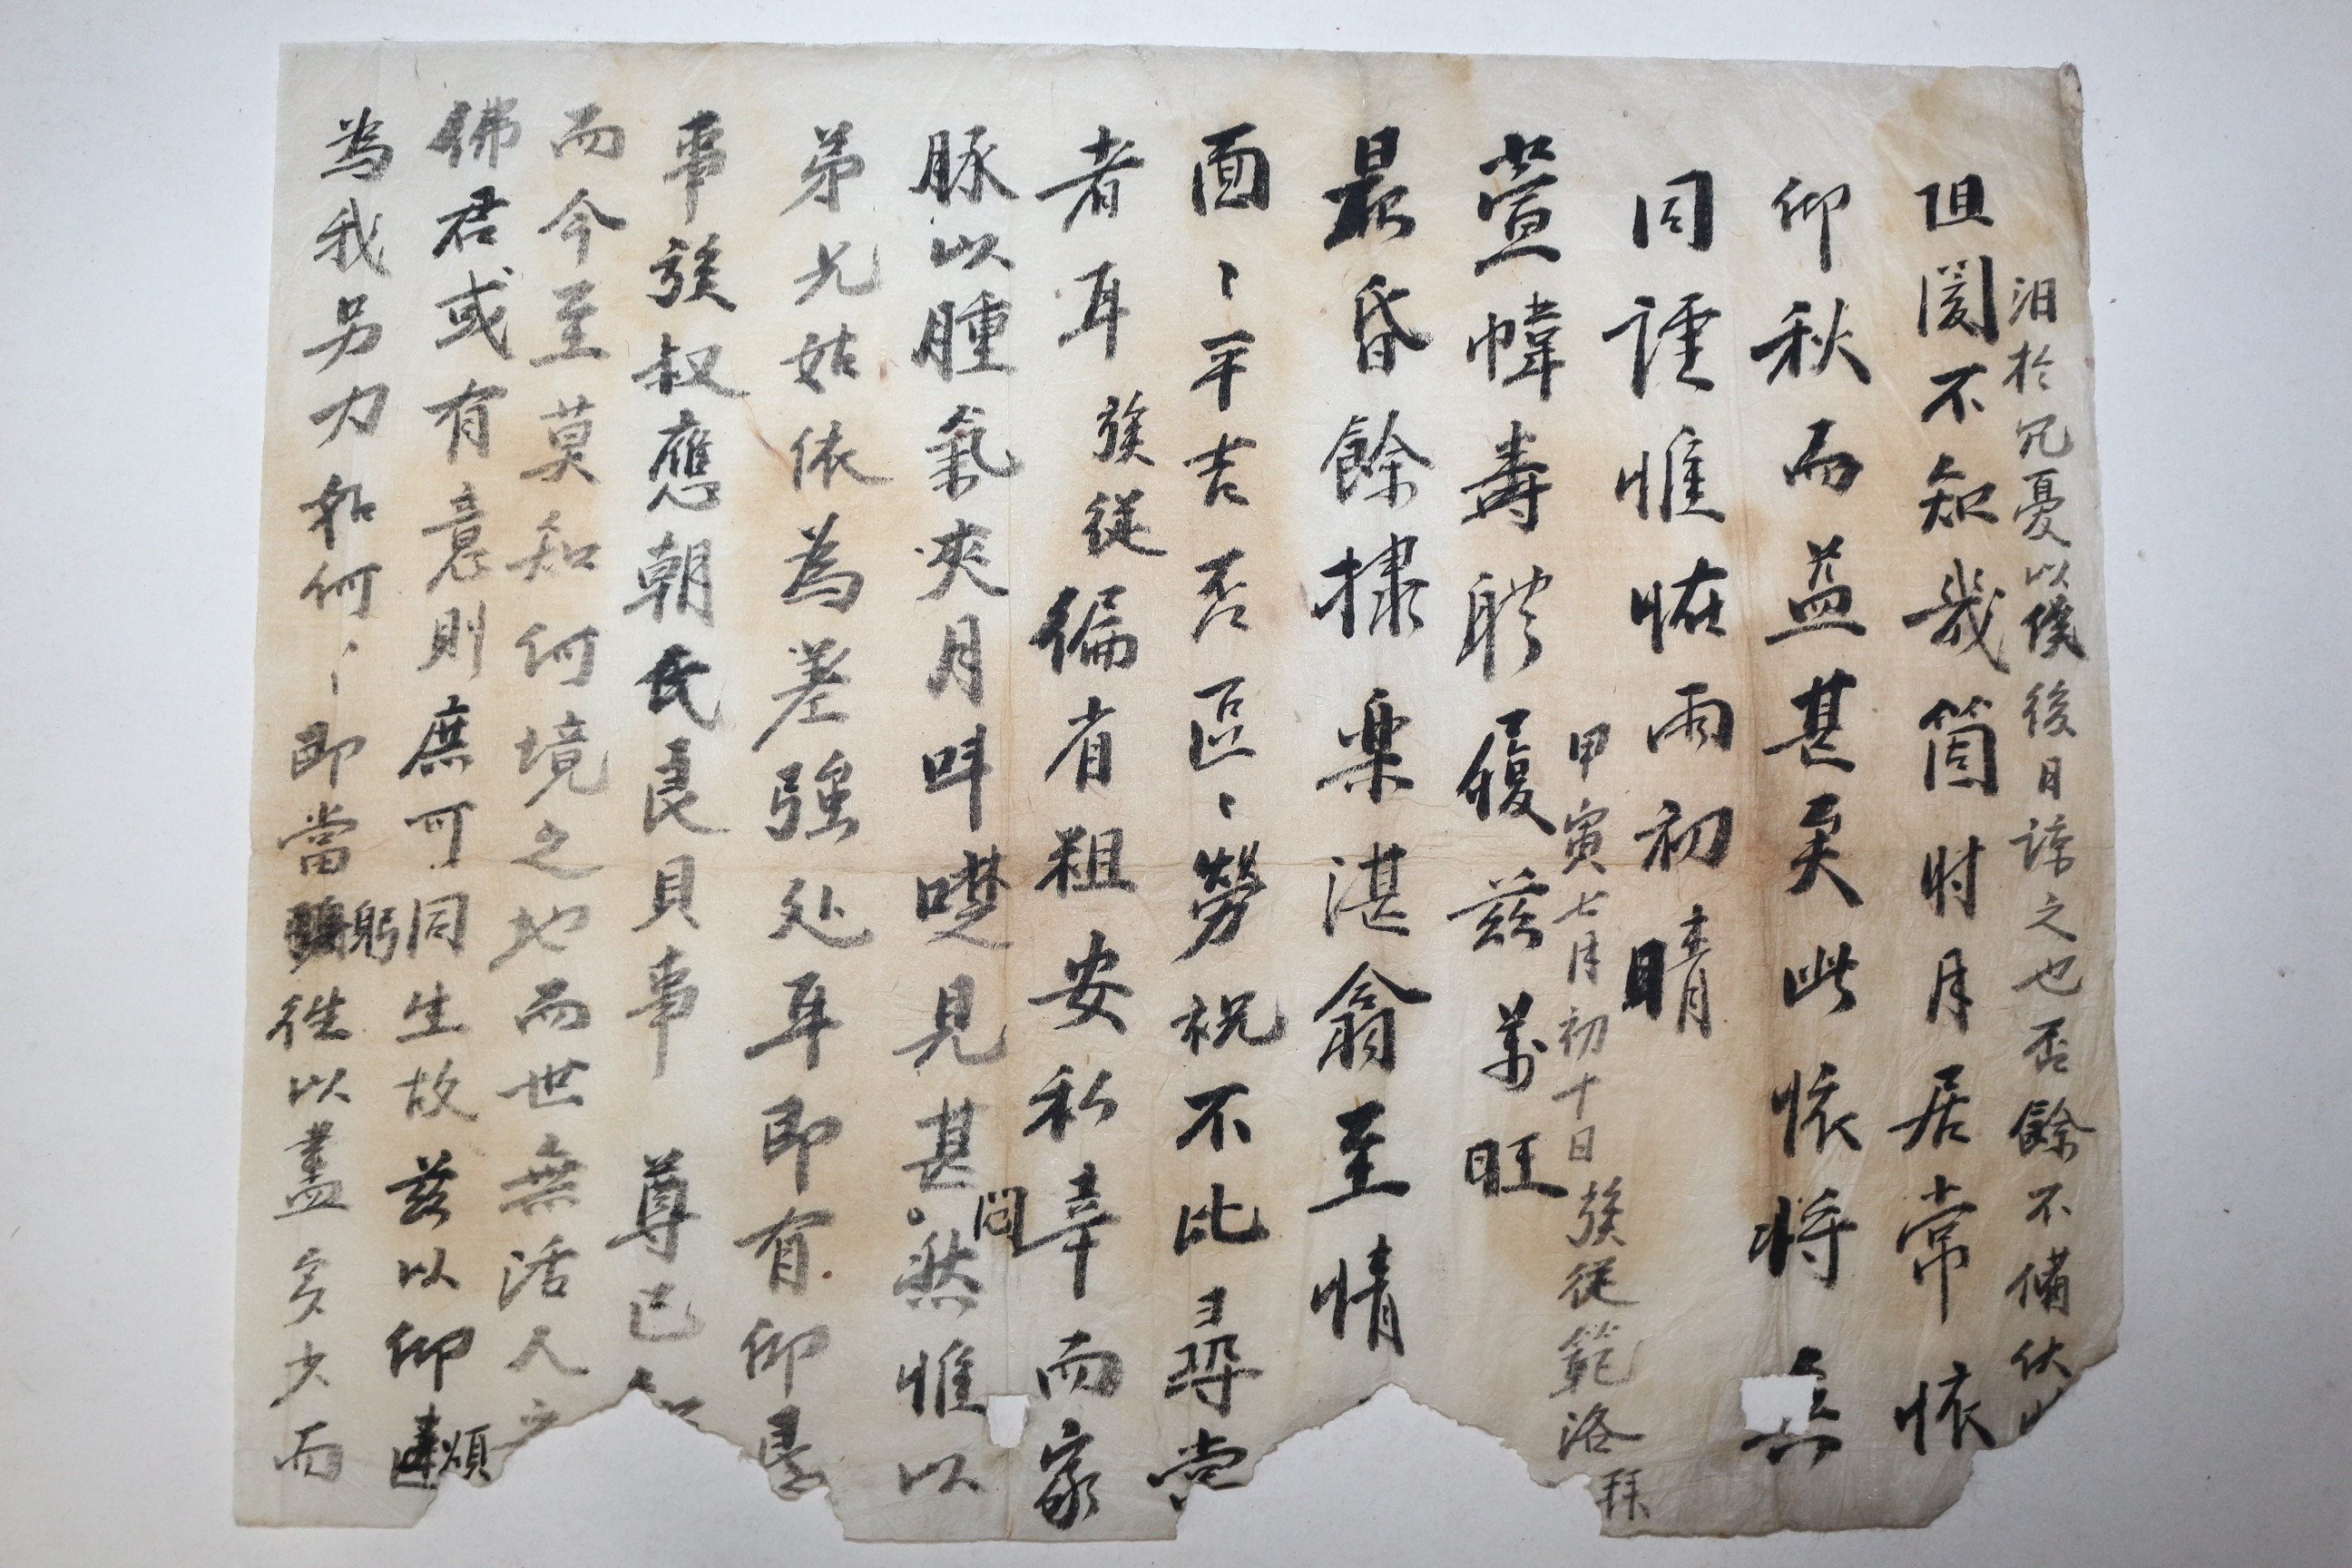 阻閡不知幾箇时月居常依
仰秋而益甚矣此依將
同謹惟怔雨初晴
萱幃壽 履玆萬旺
晨昏餘棣樂湛翁至情
面〻平吉否區〻勞祝不比尋常
者耳族從徧省粗安私幸而家
豚以腫氣浹月叫 見甚悶然惟以
弟兄姑依為差強处耳即有仰
事族叔應朝氏良貝事尊已知
而今至莫知何境之地而世無活人之
佛君或有意則庶可同生故玆以仰煩
為我另力如何〻即當躬徃以盡多少而
汨於冗憂以俟後日諒之也否餘不備伏
甲寅七月初十日族從範洛拜